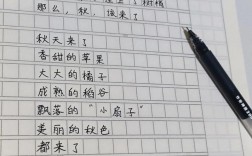 那么，秋，谁来了
秋天来了
香甜的苹果
大大的橘子
成熟的稻谷
飘落的“小扇子”
美丽的秋色
都来了